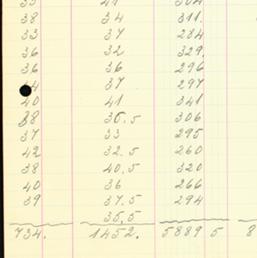 38 34 311.
33 37 284
36 32 329.
36 36 296
44 37 297
40 41 341
38 35.5 306
37 33 295
42 32.5 260
38 40.5 320
40 36 266
39 37.5 294
35,5
734. 1452. 5889 5 8